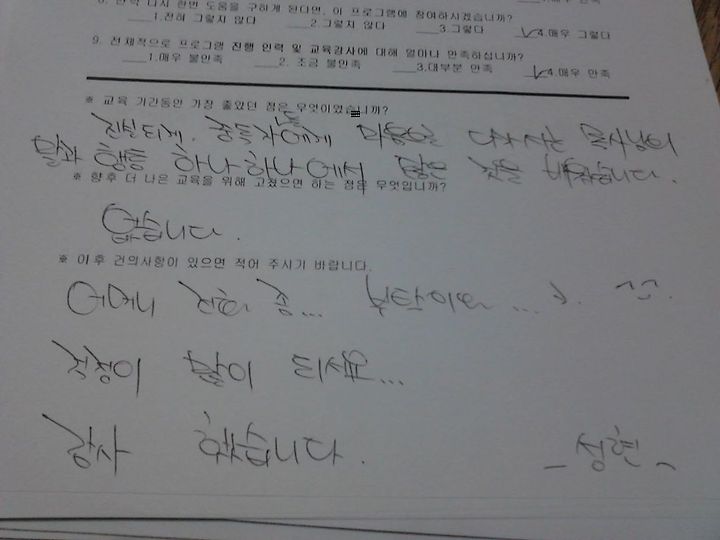 8. 만약 다시 한번 도움을 구하게 된다면, 이 프로그램에 참여하시겠습니까?
___1.전혀 그렇지 않다 ___2.그렇지 않다 ___3.그렇다 _√_4.매우 그렇다
9. 전체적으로 프로그램 진행 인력 및 교육강사에 대해 얼마나 만족하십니까?
___1.매우 불만족 ___2. 조금 불만족 ___3.대부분 만족 _√_4.매우 만족
※ 교육 기간동안 가장 좋았던 점은 무엇이었습니까?
진실되게. 중독자들에게 마음을 다하시는 목사님의
말과 행동 하나하나에서 많은 것을 배웠습니다.
※ 향후 더 나은 교육을 위해 고쳤으면 하는 점은 무엇입니까?
없습니다.
※ 이후 건의사항이 있으면 적어 주시기 바랍니다.
어머니 전화 좀... 부탁이요 ...
걱정이 많이 되세요...
감사 했습니다.
- 성현 -